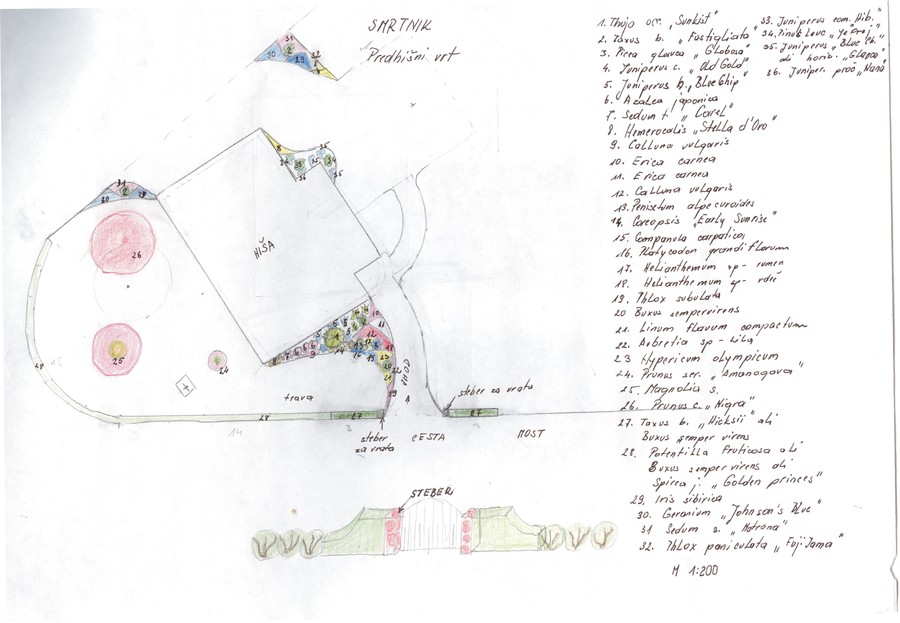 SMRTNIK
Predhišni vrt
1. Thuja occ. „Sunkist"
2. Taxus b. „Fastigliata"
3. Picea glauca „Globosa"
4. Juniperus c. „Old Gold"
5. Juniperus h. „Blue Chip"
6. Azalea japonica
7. Sedum t. „Corel"
8. Hemerocalis „Stella d'Oro"
9. Calluna vulgaris
10. Erica carnea
11. Erica carnea
12. Calluna vulgaris
13. Penisetum alpecuroides
14. Coreopsis „Early Sunrise"
15. Companula carpatica
16. Platycodon grandiflorum
17. Helianthemum sp - rumen
18. Helianthemum sp - rdeč
19. Phlox subulata
20 Buxus sempervirens
21. Linum flavum compactum
22. Aubretia sp - lila
23 Hypericum olympicum
24. Prunus ser. „Amanogava"
25. Magnolia s.
26. Prunus c. „Nigra"
27. Taxus b. „Hicksii" ali
Buxus semper virens
28. Potentilla fruticosa ali
Buxus sempervirens ali
Spirea j. „Golden princes"
29. Iris sibirica
30. Geranium „Johnson's Blue"
31 Sedum s. „Matrona"
32. Phlox paniculata „Fuji Jama"
33. Juniperus com. Hib."
34. Pinus leuc.
35. Juniperus „Blue Ch."
ali horiz. „Glauca"
36. Juniper. „Nana"
M 1:200
31
30
2
29
32
8
35
36
33
35
34
35
31
2
30
29
26
HIŠA
25
24
28
trava
28
27
VHOD
steber za vrata
27
14
3
steber
za vrata
CESTA
3
MOST
STEBER